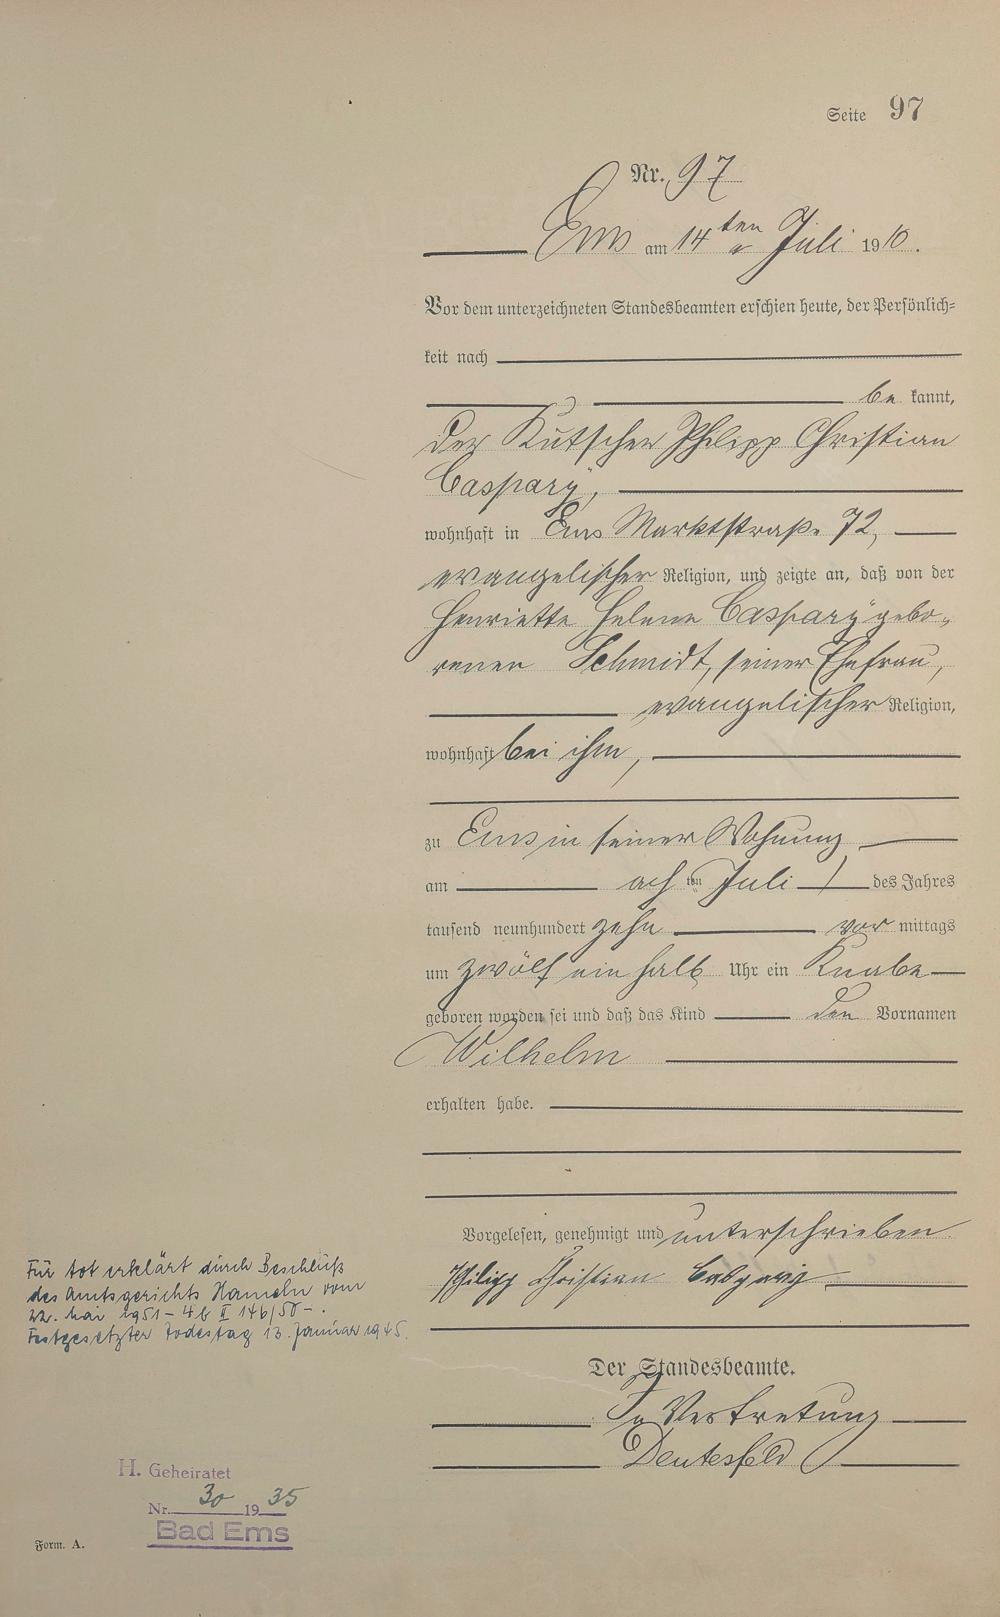 Seite 97
Nr. 97
Ems am 14ten Juli 1910.
Vor dem unterzeichneten Standesbeamten erschien heute, der Persönlich-
keit nach
be kannt,
der Kutscher Philipp Christian
Caspary,
wohnhaft in Ems Marktstraße 72,
evangelischer Religion, und zeigte an, daß von der
Henriette Helene Caspary gebo-
renen Schmidt, seiner Ehefrau,
evangelischer Religion,
wohnhaft bei ihm,
zu Ems in seiner Wohnung
am achten Juli des Jahres
tausend neunhundert zehn vor mittags
um zwölf ein halb Uhr ein Knabe
geboren worden sei und daß das Kind den Vornamen
Wilhelm
erhalten habe.
Vorgelesen, genehmigt und unterschrieben
Philipp Christian Caspary
Der Standesbeamte.
In Vertretung
Deutesfeld
Für tot erklärt durch Beschluß
des Amtsgerichts Hameln vom
22. Mai 1951 – 4b II 146/50 –.
Festgesetzter Todestag 13. Januar 1945.
H. Geheiratet
Nr. 30 1935
Bad Ems
Form. A.